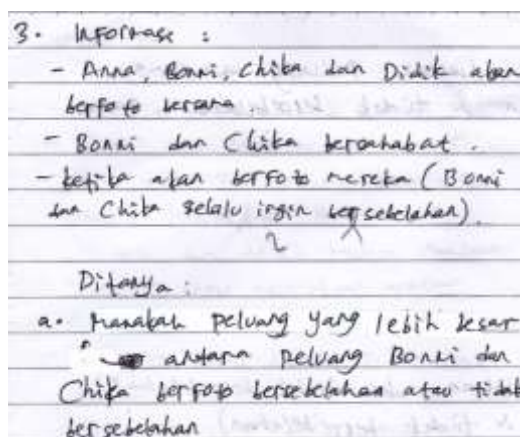 3. Informasi :
- Anna, Bonni, Chika dan Didik akan
berfoto bersama
- Bonni dan Chika bersahabat.
- ketika akan berfoto mereka (Bonni
dan Chika selalu ingin bersebelahan).
Ditanya :
a. Manakah peluang yang lebih besar
antara peluang Bonni dan
Chika berfoto bersebelahan atau tidak
bersebelahan